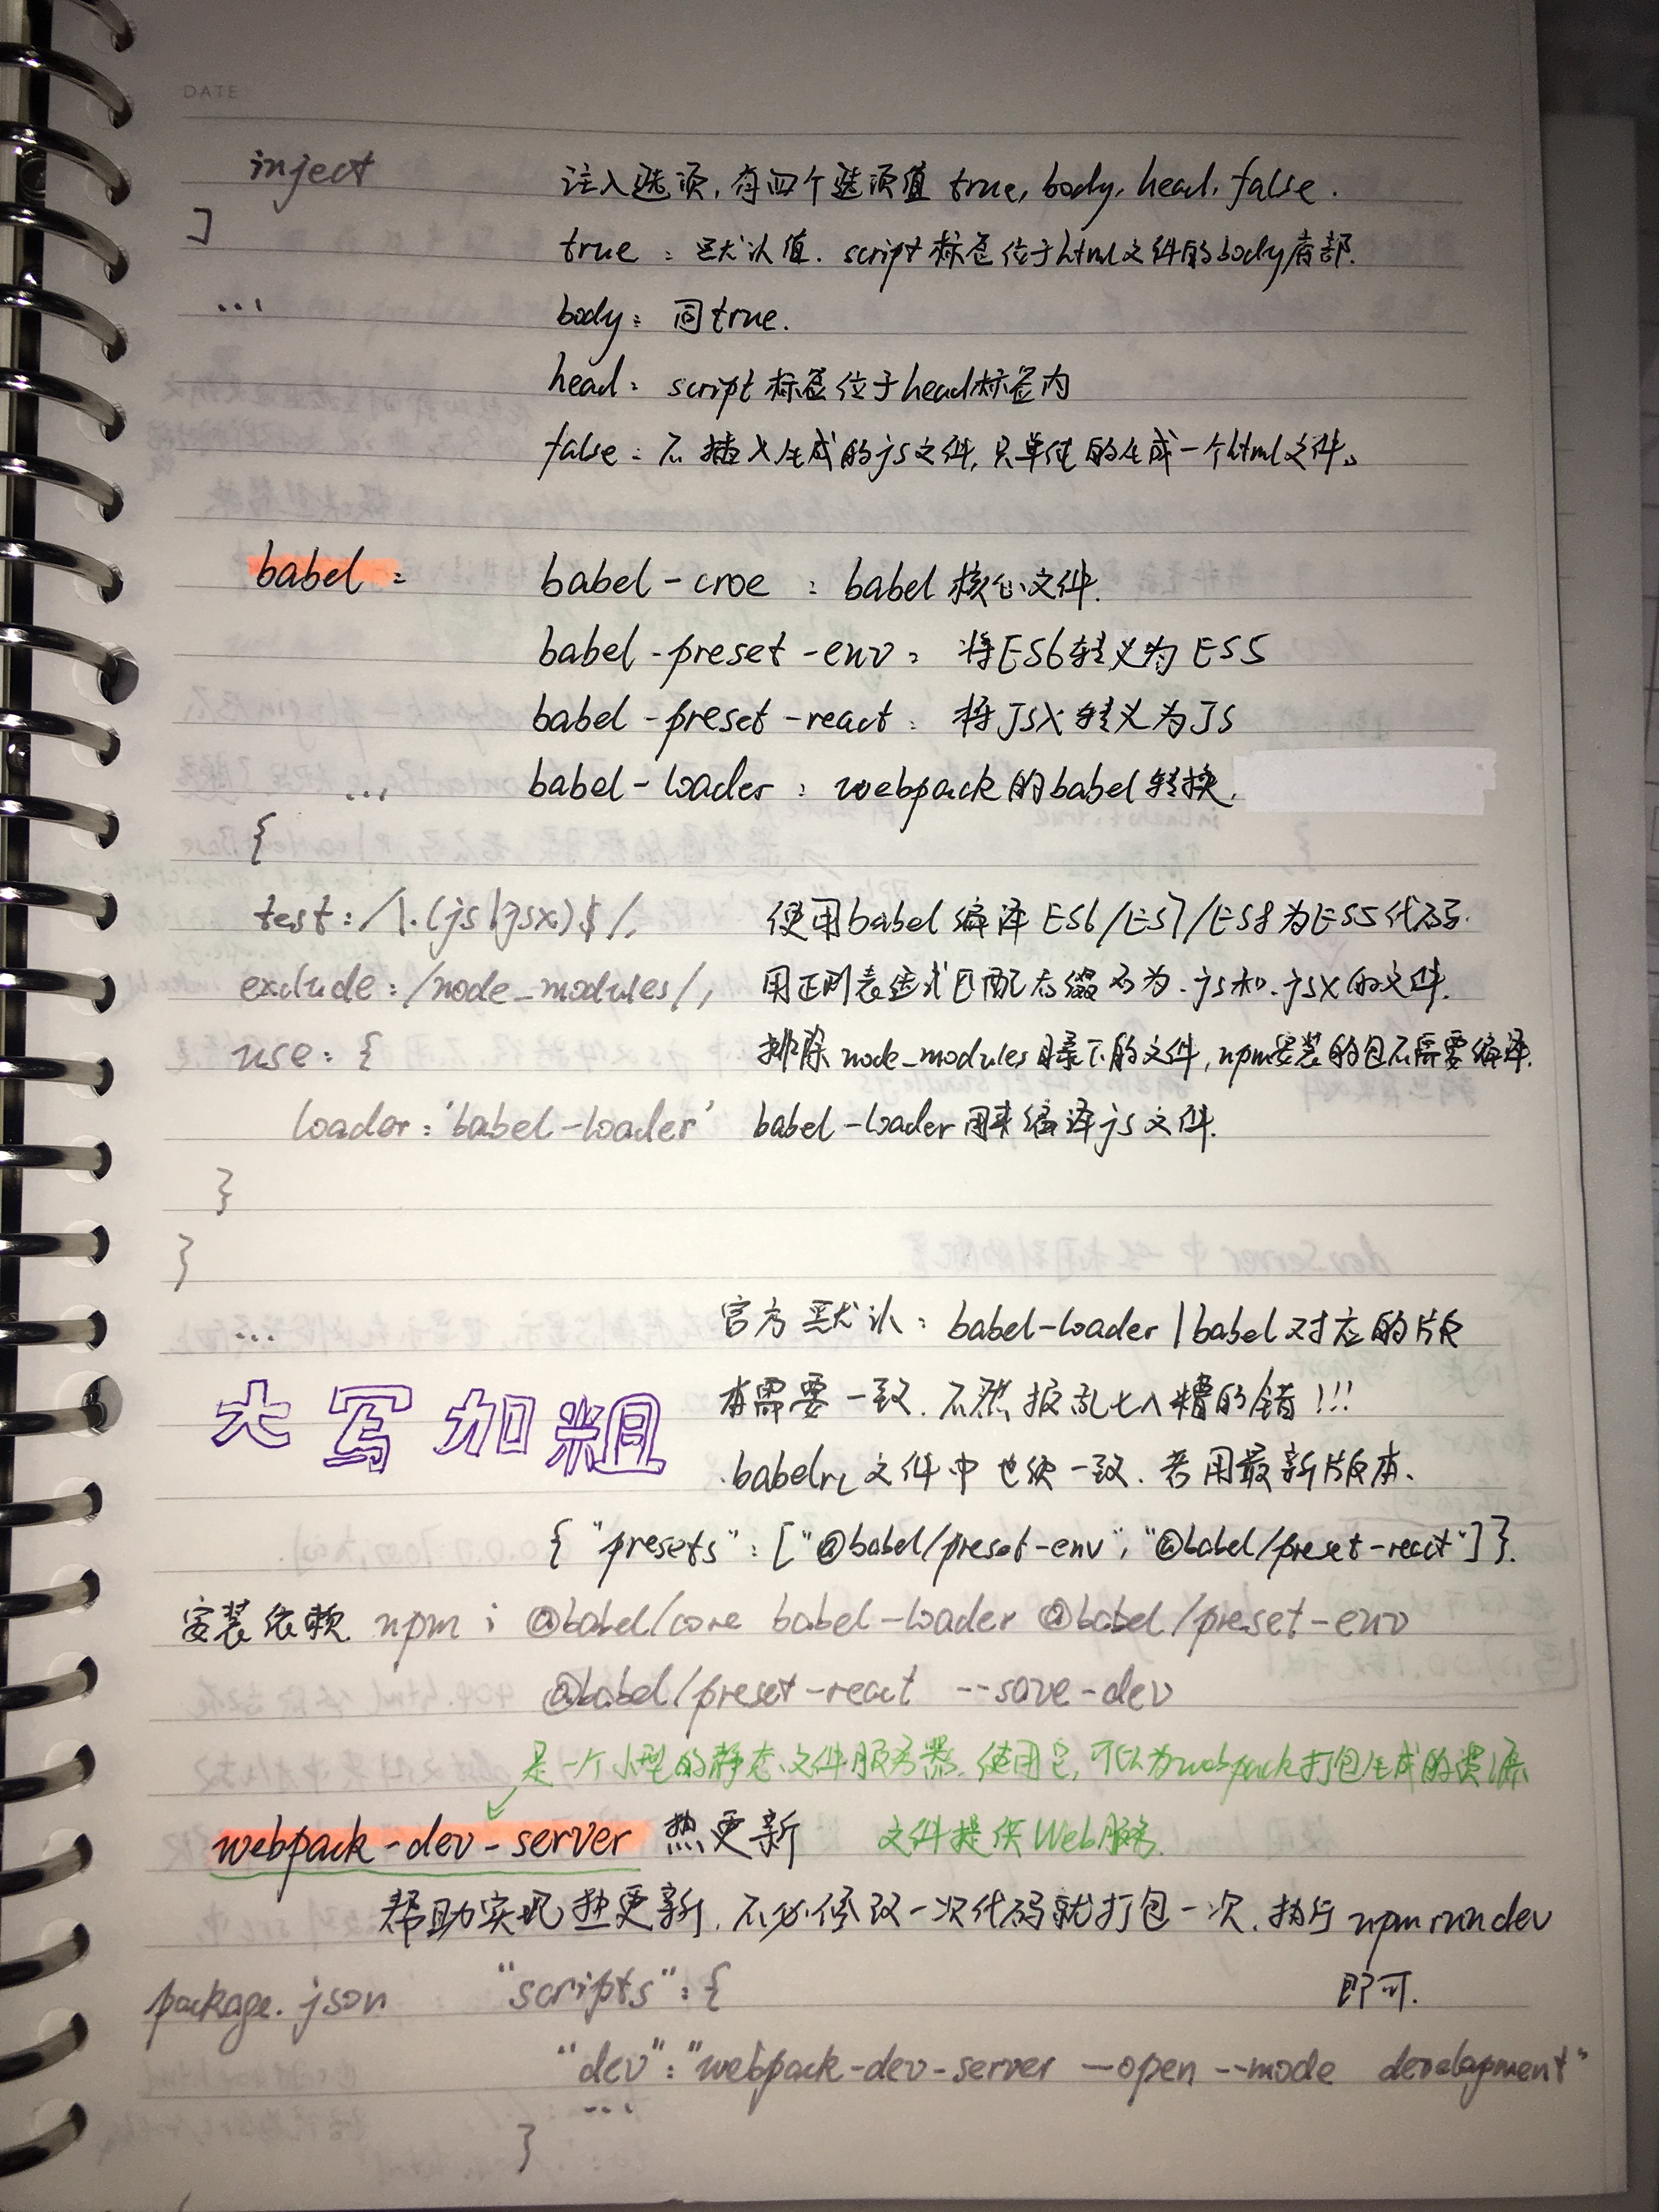 DATE
inject 注入选项,有四个选项值 true, body, head, false.
]
true : 默认值. script标签位于html文件的body底部.
...
body: 同true.
head: script标签位于head标签内
false: 不插入生成的js文件,只单纯的生成一个html文件。
babel: babel-croe : babel核心文件.
babel-preset-env: 将ES6转义为ES5
babel-preset-react: 将JSX转义为JS
... babel-loader : webpack的babel转换.
{
test: /\.(js|jsx)$/, 使用babel编译ES6/ES7/ES8为ES5代码.
exclude: /node_modules/, 用正则表达式匹配后缀名为.js和.jsx的文件.
use: { 排除node_modules目录下的文件,npm安装的包不需要编译.
loader: 'babel-loader' babel-loader用来编译js文件.
}
}
... 官方默认: babel-loader | babel对应的版
大写加粗 本需要一致.不然报乱七八糟的错!!!
.babelrc文件中也须一致.若用最新版本.
{ "presets": ["@babel/preset-env", "@babel/preset-react"]}.
安装依赖. npm i @babel/core babel-loader @babel/preset-env
@babel/preset-react --save-dev
是一个小型的静态文件服务器.使用它,可以为webpack打包生成的资源
webpack-dev-server 热更新 文件提供Web服务.
帮助实现热更新.不必修改一次代码就打包一次.执行 npm run dev
即可.
package.json "scripts": {
"dev": "webpack-dev-server --open --mode development"
...
}